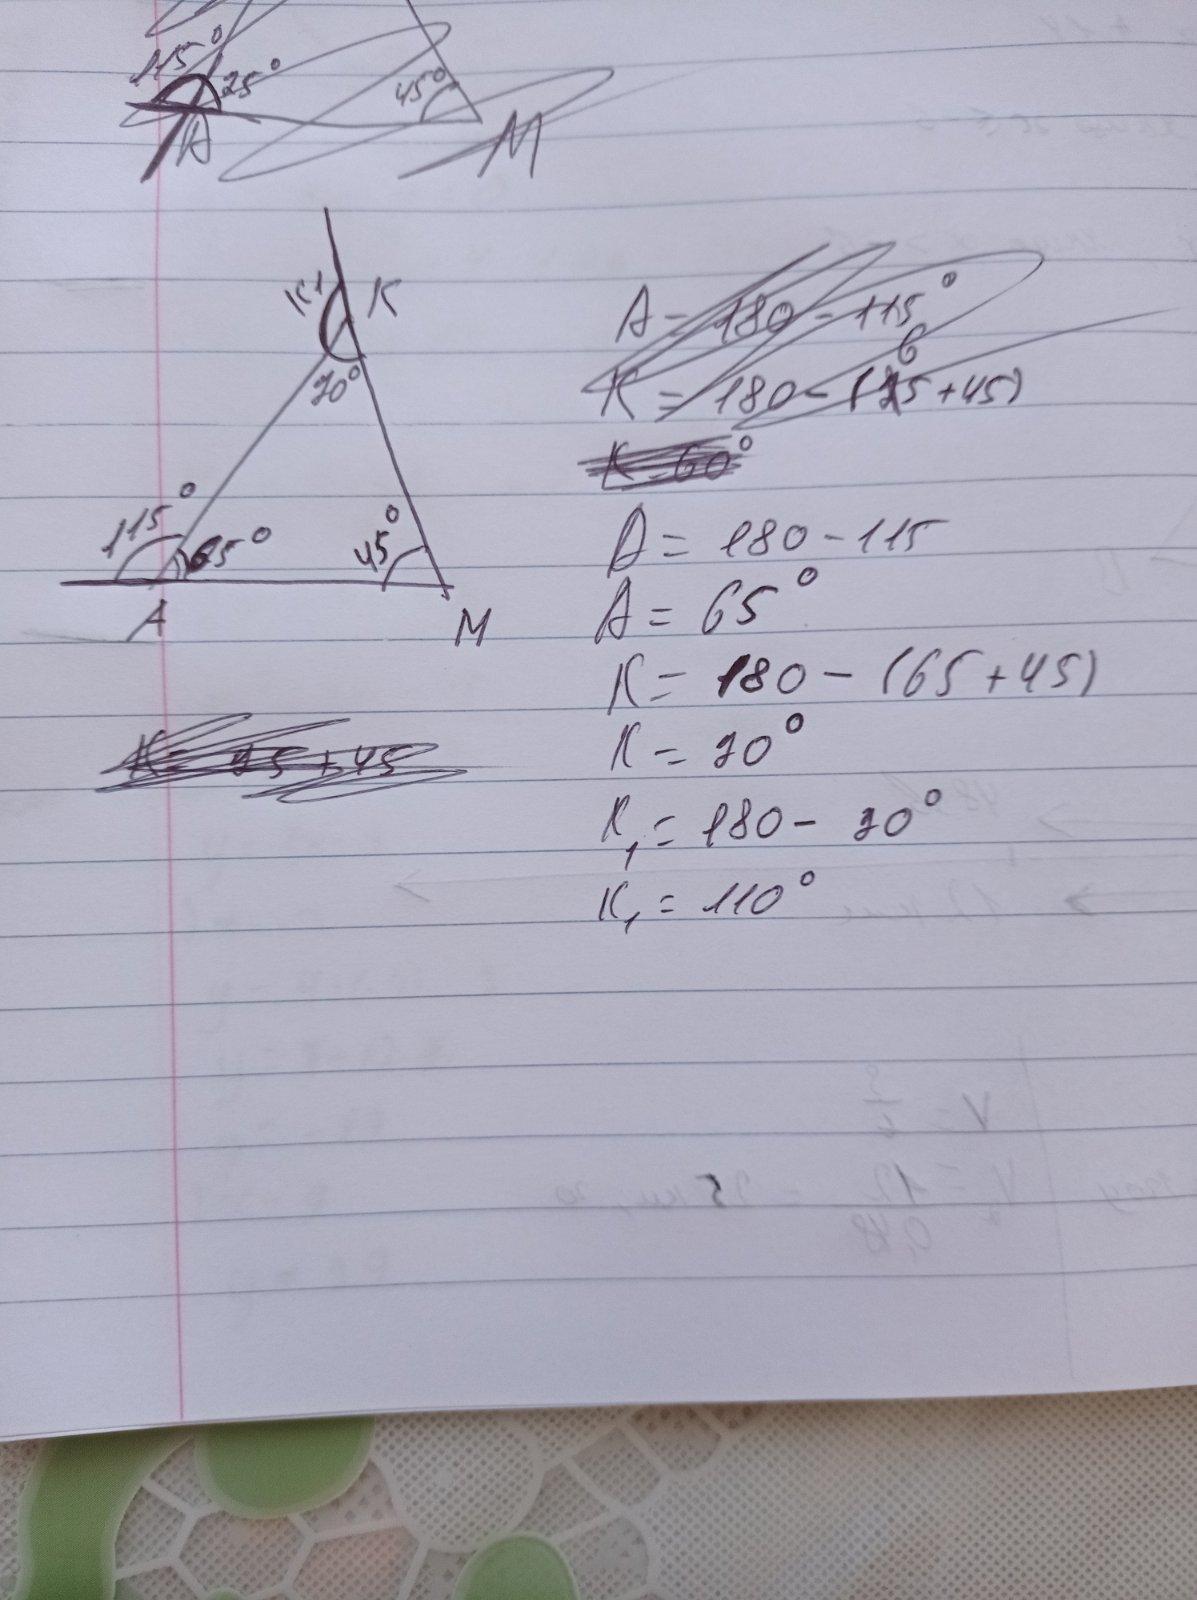 115°
25°
45°
A
M
K1
K
70°
115°
65°
45°
A
M
A = 180 - 115°
K = 180 - (65 + 45)
K = 60°
A = 180 - 115
A = 65°
K = 180 - (65 + 45)
K = 70°
K₁ = 180 - 70°
K₁ = 110°
K = 25 + 45